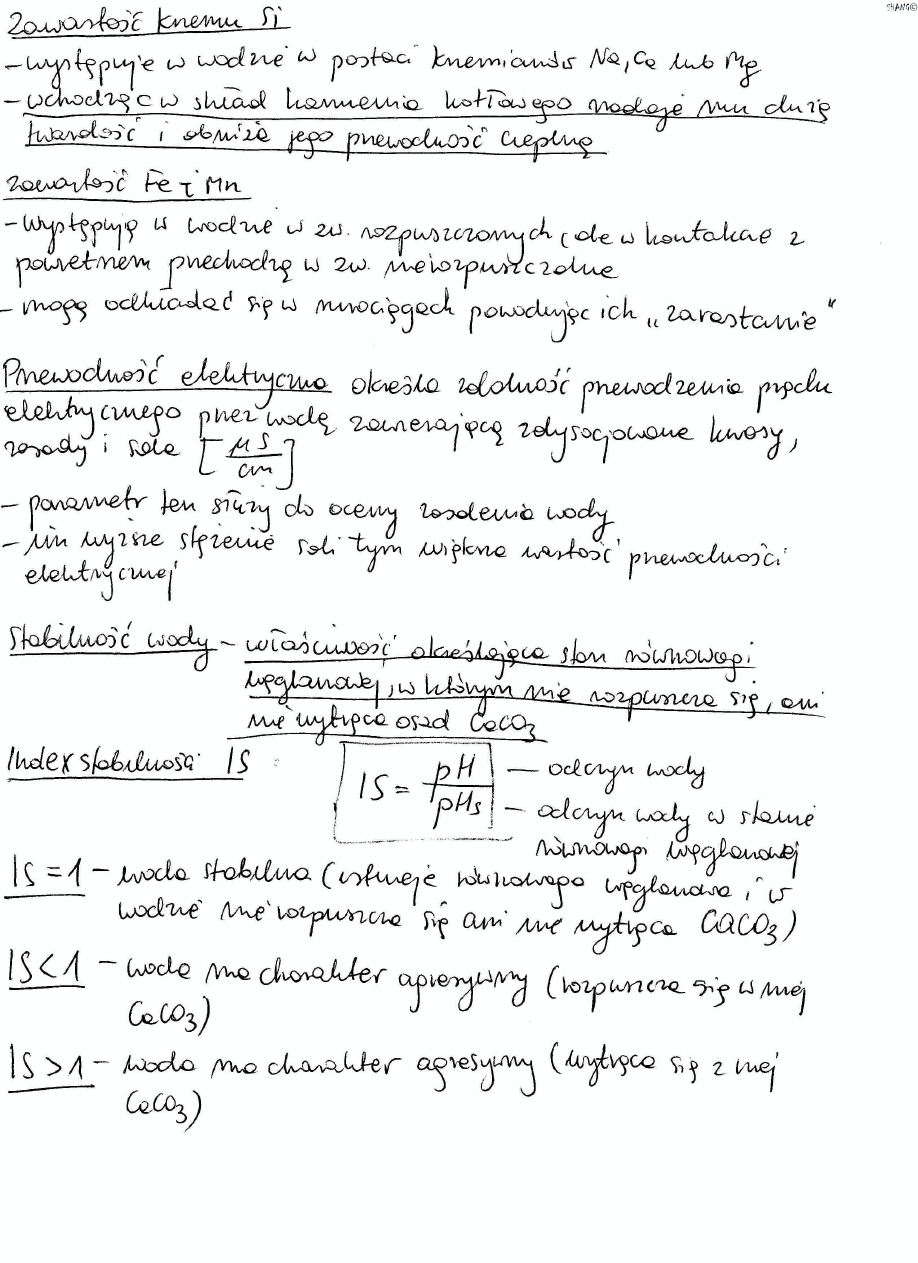 SHANG©
Zawartość krzemu Si
- występuje w wodzie w postaci krzemianów Na, Ca lub Mg
- wchodząc w skład kamienia kotłowego nadaje mu dużą
twardość i obniża jego przewodność cieplną
Zawartość Fe i Mn
- występują w wodzie w zw. rozpuszczonych ale w kontakcie z
powietrzem przechodzą w zw. nierozpuszczalne
- mogą odkładać się w rurociągach powodując ich „zarastanie"
Przewodność elektryczna określa zdolność przewodzenia prądu
elektrycznego przez wodę zawierającą zdysocjowane kwasy,
zasady i sole [μS/cm]
- parametr ten służy do oceny zasolenia wody
- im wyższe stężenie soli tym większa wartość przewodności
elektrycznej
Stabilność wody - właściwość określająca stan równowagi
węglanowej, w którym nie rozpuszcza się, ani
nie wytrąca osad CaCO3
Index stabilności IS
IS = pH/pHs
- odczyn wody
- odczyn wody w stanie
równowagi węglanowej
IS = 1 - woda stabilna (istnieje równowaga węglanowa i w
wodzie nie rozpuszcza się ani nie wytrąca CaCO3)
IS < 1 - woda ma charakter agresywny (rozpuszcza się w niej
CaCO3)
IS > 1 - woda ma charakter agresywny (wytrąca się z niej
CaCO3)